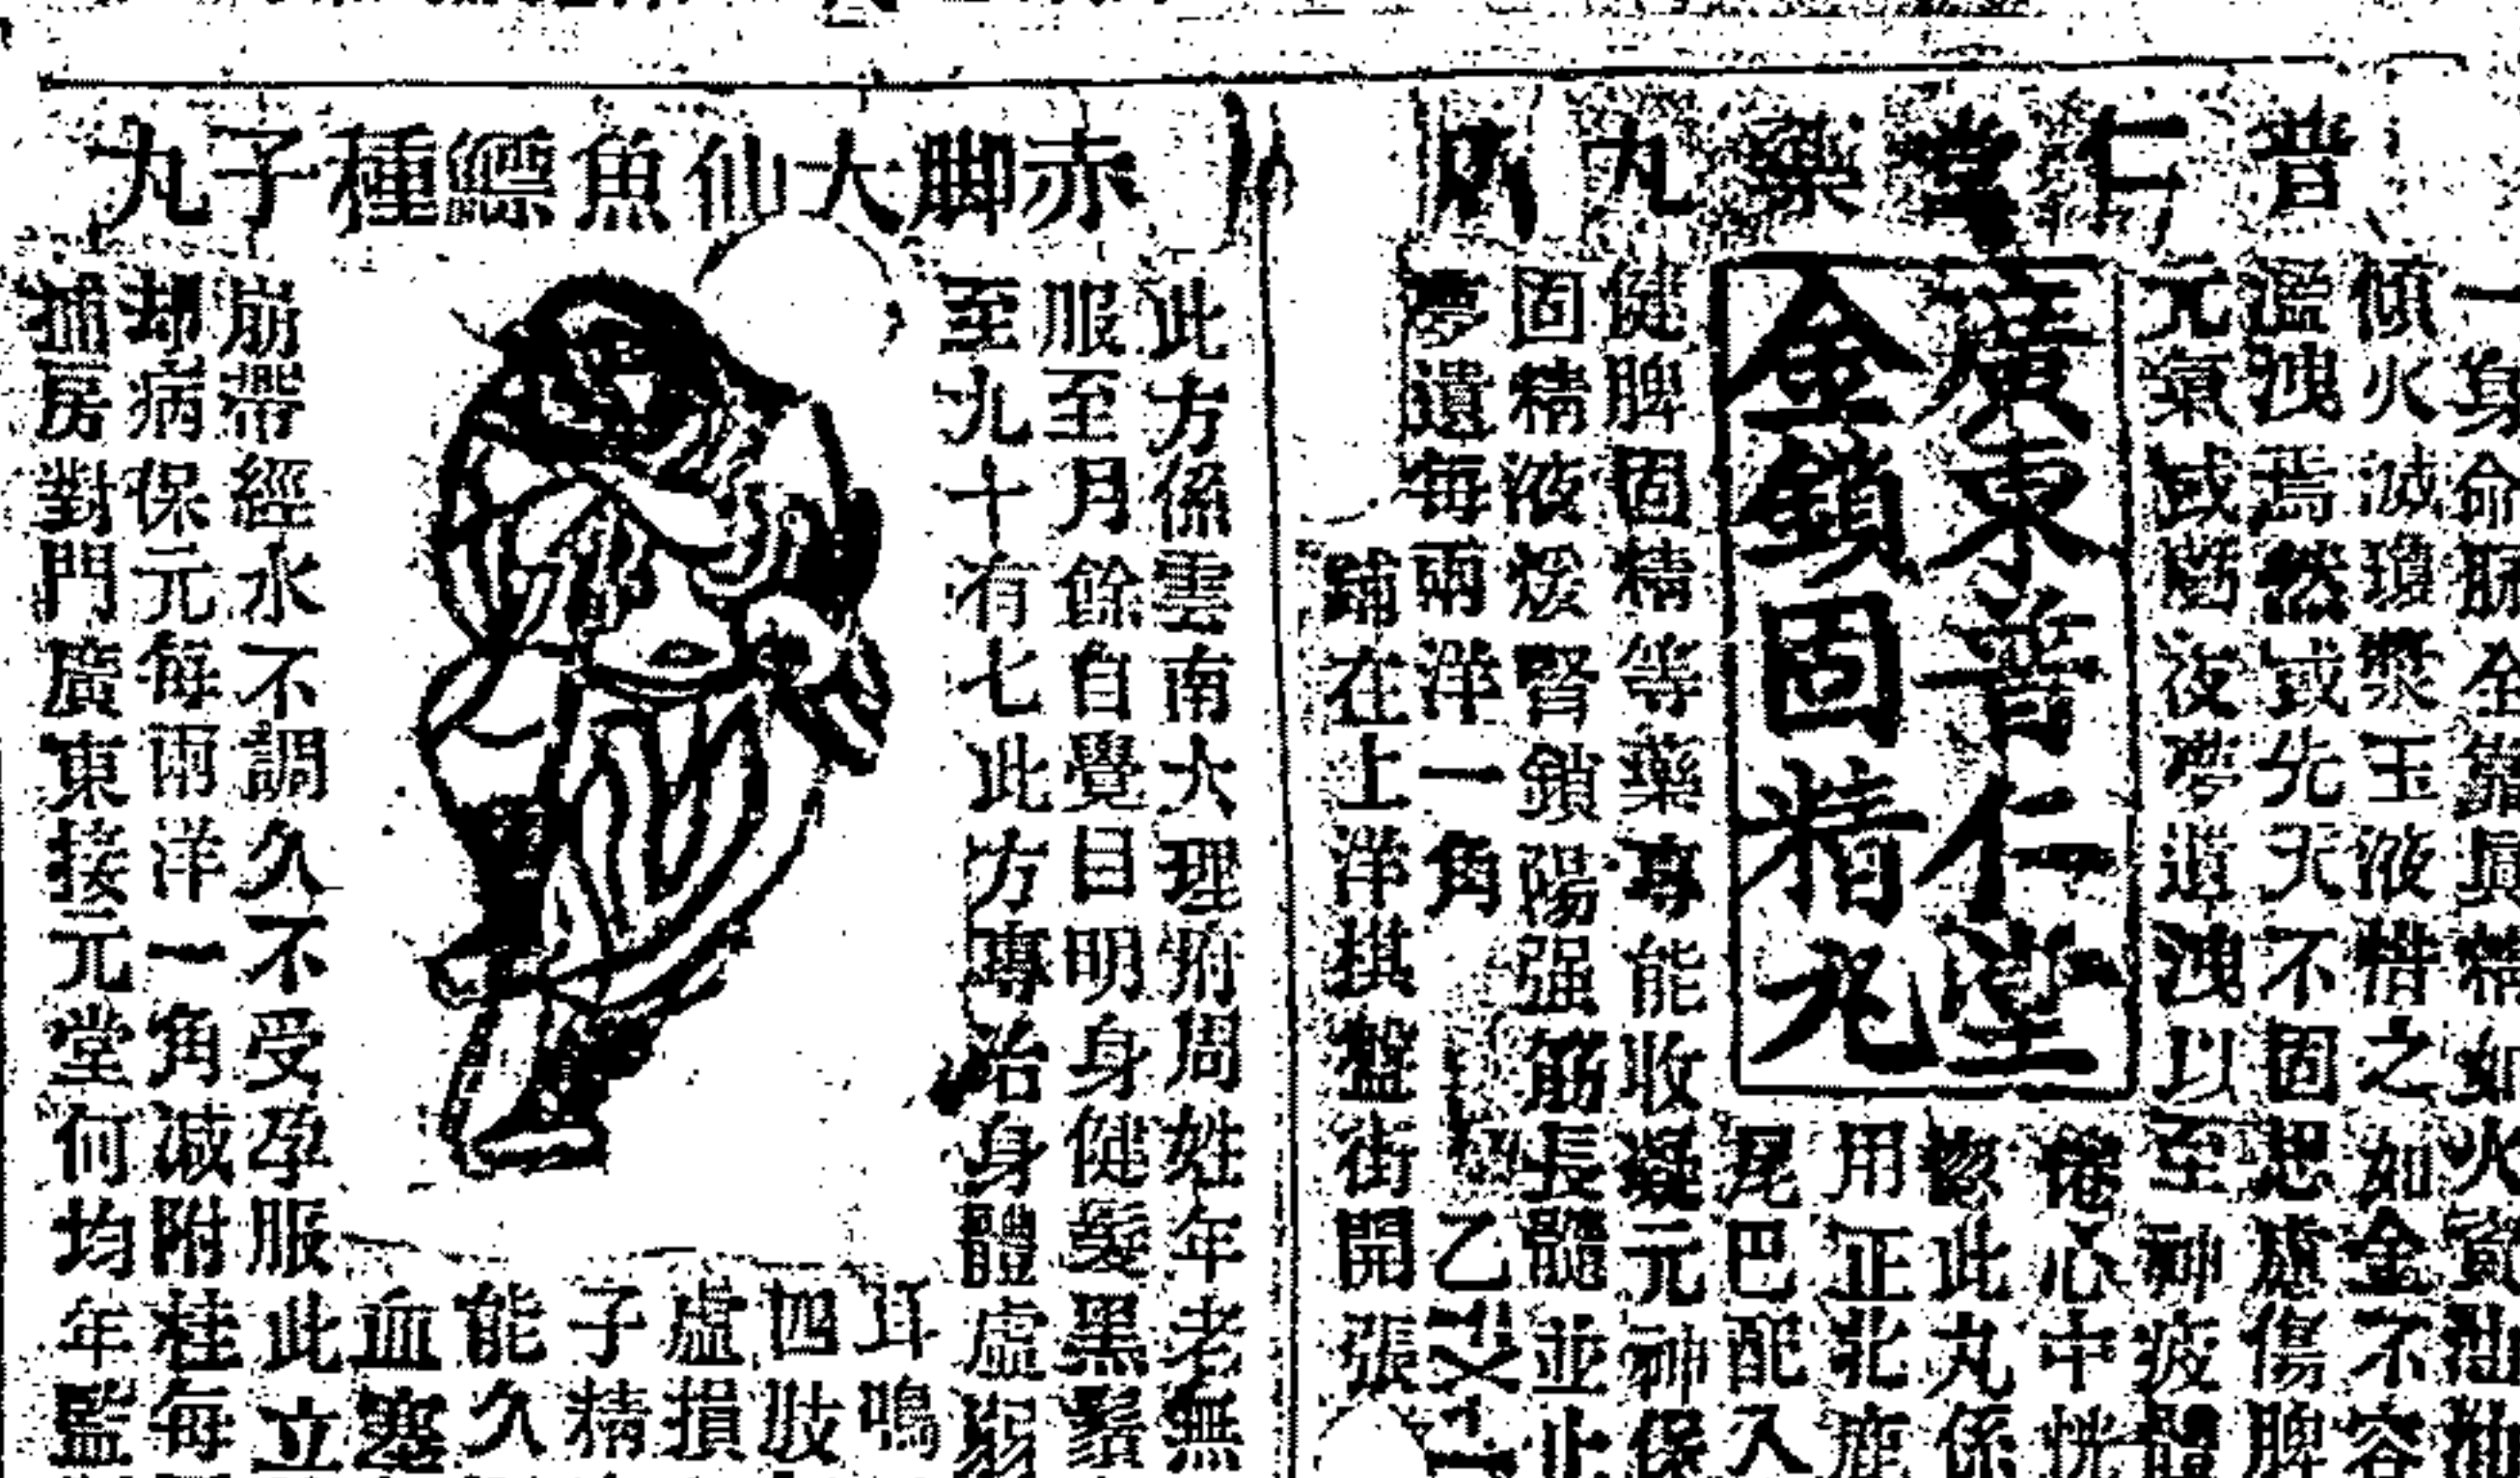 普仁堂藥丸
一身命脈全靠眞精如火
傾火滅瓊漿玉液惜之如金不容
濫洩焉然或先天不固思慮傷脾
元氣或晝夜夢遺洩以至神疲體
廣東普仁堂
金鎖固精丸
倦心中恍
此丸係
用正北鹿
尾巴配入
健脾固精等藥專能收凝元神保
固精液煖腎鎖陽强筋長髓並止
夢遺每兩洋一角
舖在上洋棋盤街開張
赤脚大仙魚鰾種子丸
此方係雲南大理府周姓年老無
服至月餘自覺目明身健髮黑鬚
至九十有七此方專治身體虛弱
耳鳴
四肢
虛損
子精
能久
血塞
崩帶經水不調久不受孕服此立
却病保元每兩洋一角減附桂每
捕房對門廣東接元堂何均年監